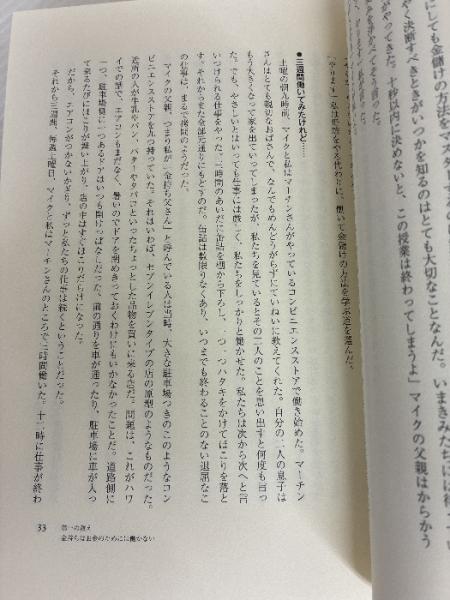 にしても金儲けの方法をマスターする
やく決断すべきときがいつかを知るのはとても大切なことなんだ。いまきみたちには
がやってきた。十秒以内に決めないと、この授業は終わってしまうよ」マイクの父親はからかう
●三週間働いてみたけれど……
土曜の朝九時、マイクと私はマーチンさんがやっているコンビニエンスストアで働き始めた。マーチン
さんはとても親切なおばさんで、なんでもめんどうがらずにていねいに教えてくれた。自分の二人の息子は
もう大きくなって家を出ていってしまったが、私たちを見ているとその二人のことを思い出すと何度も言っ
た。でも、やさしいとはいっても仕事には厳しく、私たちをしっかりと働かせた。私たちは次から次へと言
いつけられる仕事をやった。三時間のあいだに缶詰を棚から下ろし、一つ一つハタキをかけてほこりを落と
す。それからまた全部元通りにもどすのだ。缶詰は数限りなくあり、いつまでも終わることのない退屈なこ
の仕事は、まるで拷問のようだった。
マイクの父親、つまり私が「金持ち父さん」と呼んでいる人は当時、大きな駐車場つきのこのようなコン
ビニエンスストアを九つ持っていた。それはいわば、セブンイレブンタイプの店の原型のようなものだった。
近所の人が牛乳やパン、バターやタバコといったちょっとした品物を買いに来る店だ。問題は、これがハワ
イでの話で、エアコンもまだなく、暑いのでドアを閉めきっておくわけにもいかなかったことだ。道路側に
一つ、駐車場側に一つあるドアはいつも開けっぱなしだった。前の通りを車が通ったり、駐車場に車が入っ
て来るたびにほこりが舞い上がり、店の中はすぐほこりだらけになった。
だから、エアコンがつかないかぎり、ずっと私たちの仕事は続くということだった。
それから三週間、毎週土曜日、マイクと私はマーチンさんのところで三時間働いた。十二時に仕事が終わ
33
第一の教え
金持ちはお金のためには働かない